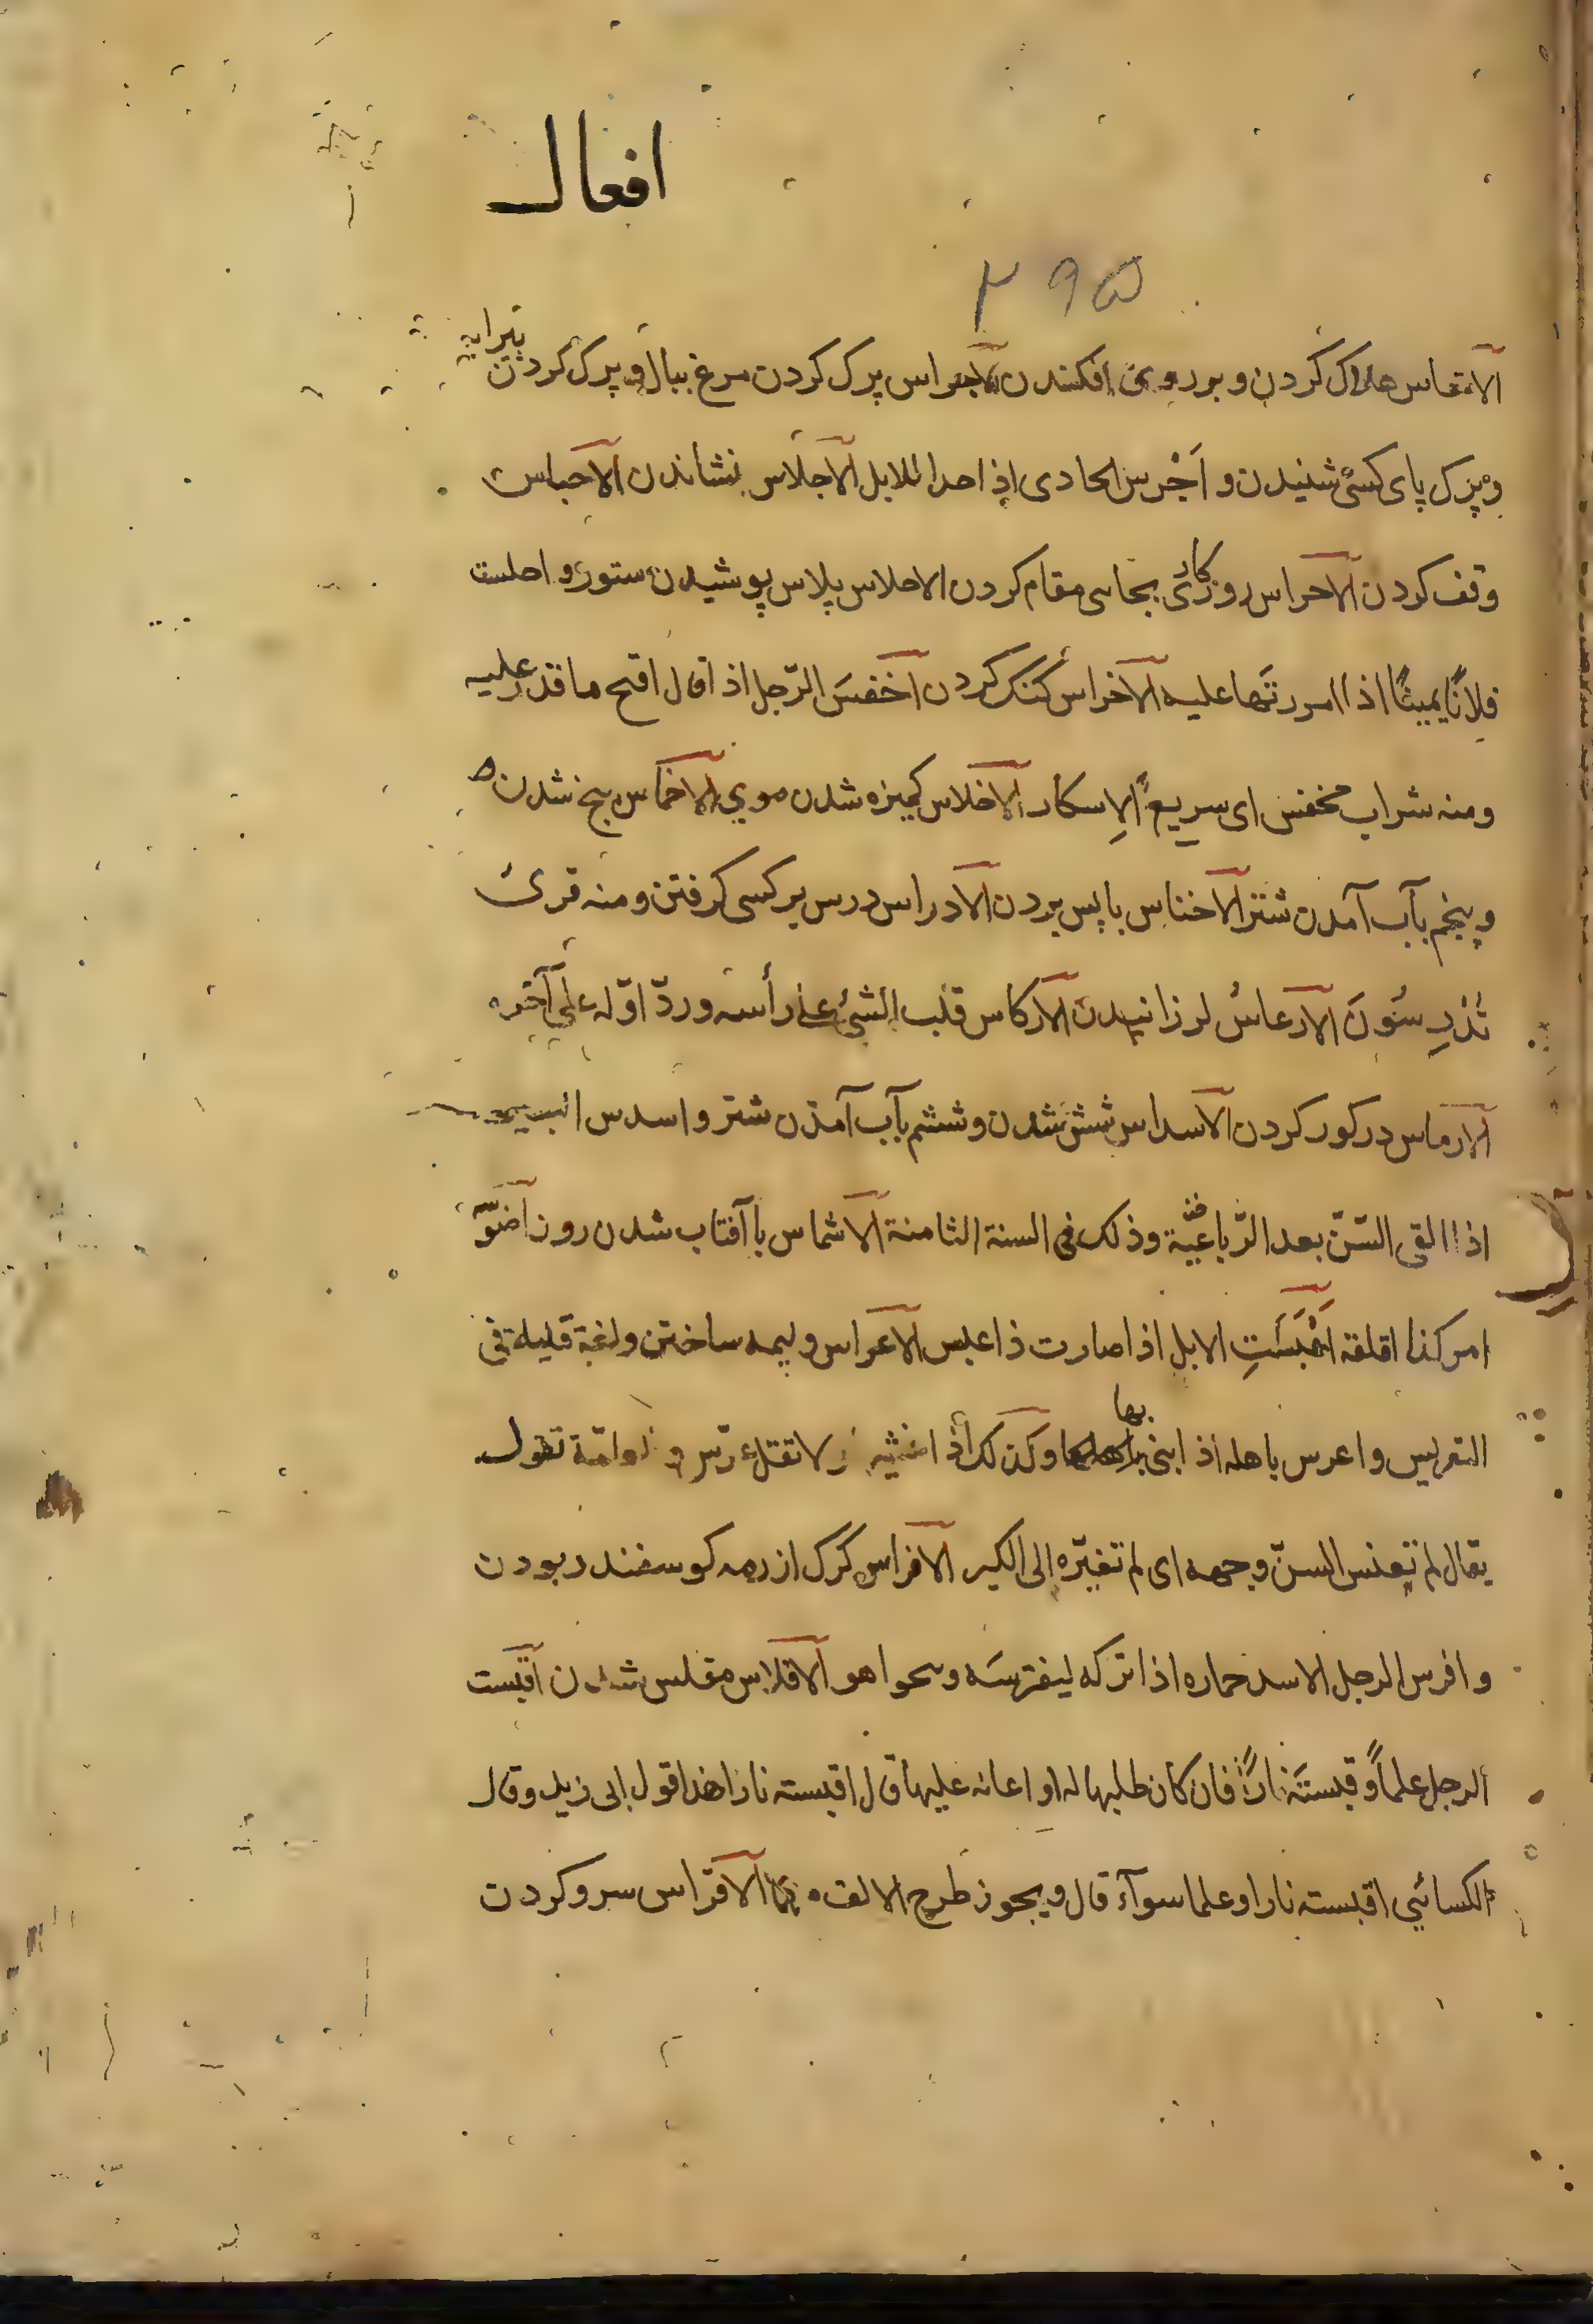 افعال
۲۹۵
الاتعاس هلاک کردن و بر روی افکندن الاجراس پرک کردن مرغ ببال و پرک کردن پیرایه
و پرک پای کسی شنیدن و اَجْرس الحادی اذا حدا للابل الاجلاس بنشاندن الاحباس
وقف کردن الاحراس روزکاری بجایی مقام کردن الاحلاس پلاس پوشیدن ستور و احلست
فلانًا یمینًا اذا امررتَها علیه الاخراس کنک کردن اخفسَ الرّجل اذا قال اقبح ما قدر علیه
ومنه شراب مخفس ای سریعُ الاِسکار الاخلاس کمیزه شدن موی الاخماس پنج شدن
و پنجم بآب آمدن شتر الاخناس باپس بردن الادراس درس بر کسی کرفتن ومنه قرئ
تُدْرِسُونَ الارعاسُ لرزانیدن الارکاس قلب الشئ علی رأسه وردّ اوّله علی آخره
الارماس در کور کردن الاسداس شش شدن و ششم بآب آمدن شتر و اسدس البعیر
اذا القی السّنّ بعد الرّباعیّة وذلک فی السنة الثامنة الاشماس با آفتاب شدن روز
امر کذا اقلقه اَعْبَسَتِ الابل اذا صارت ذا عبس الاعراس ولیمه ساختن ولغة قلیلة فی
التعریس واعرس باهله اذا بنی بها وکذلک اذا غشیها ولا تقل عرّس و العامّة تقول
یقال لم تعنس السنّ وجهه ای لم تغیّره الی الکبر الافراس کرک از رمه کوسفند ربودن
وافرس الرجل الاسد حماره اذا ترکه لیفترسَه وینجوا هو الافلاس مفلس شدن اقبست
الرجل علماً وقبستَه ناراً فان کان طلبها له او اعانه علیها قال اقبسته نارا هذا قول ابی زید وقال
الکسائی اقبسته نارا او علما سوآء قال ویجوز طرح الالف منهما الاقراس سرو کردن